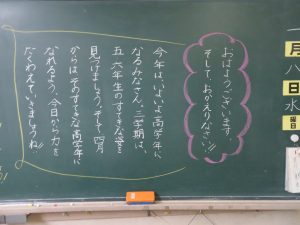 おはようございます。
そして、おかえりなさい!!
今年は、いよいよ高学年に
なるみなさん。三学期は、
五、六年生のすてきな姿を
見つけましょう。そして四月
からは、そのすてきな高学年に
なれるよう、今日から力を
たくわえていきましょうね。
一
月
八
日
水
曜日